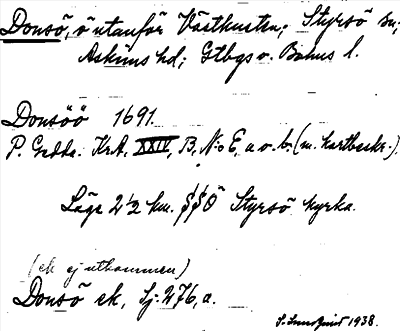 Donsö, ö utanför Västkusten; Styrsö sn;
Askims hd; Gtbgs o. Bohus l.
Donsöö 1691.
P. Gedda. KrA. XXIV, B, N:o E, a o. b. (m. kartbeskr.).
Läge 2 1/2 km. SSÖ Styrsö kyrka.
(ek ej utkommen)
Donsö ek, Sj: 276, a.
S. Sundquist 1938.